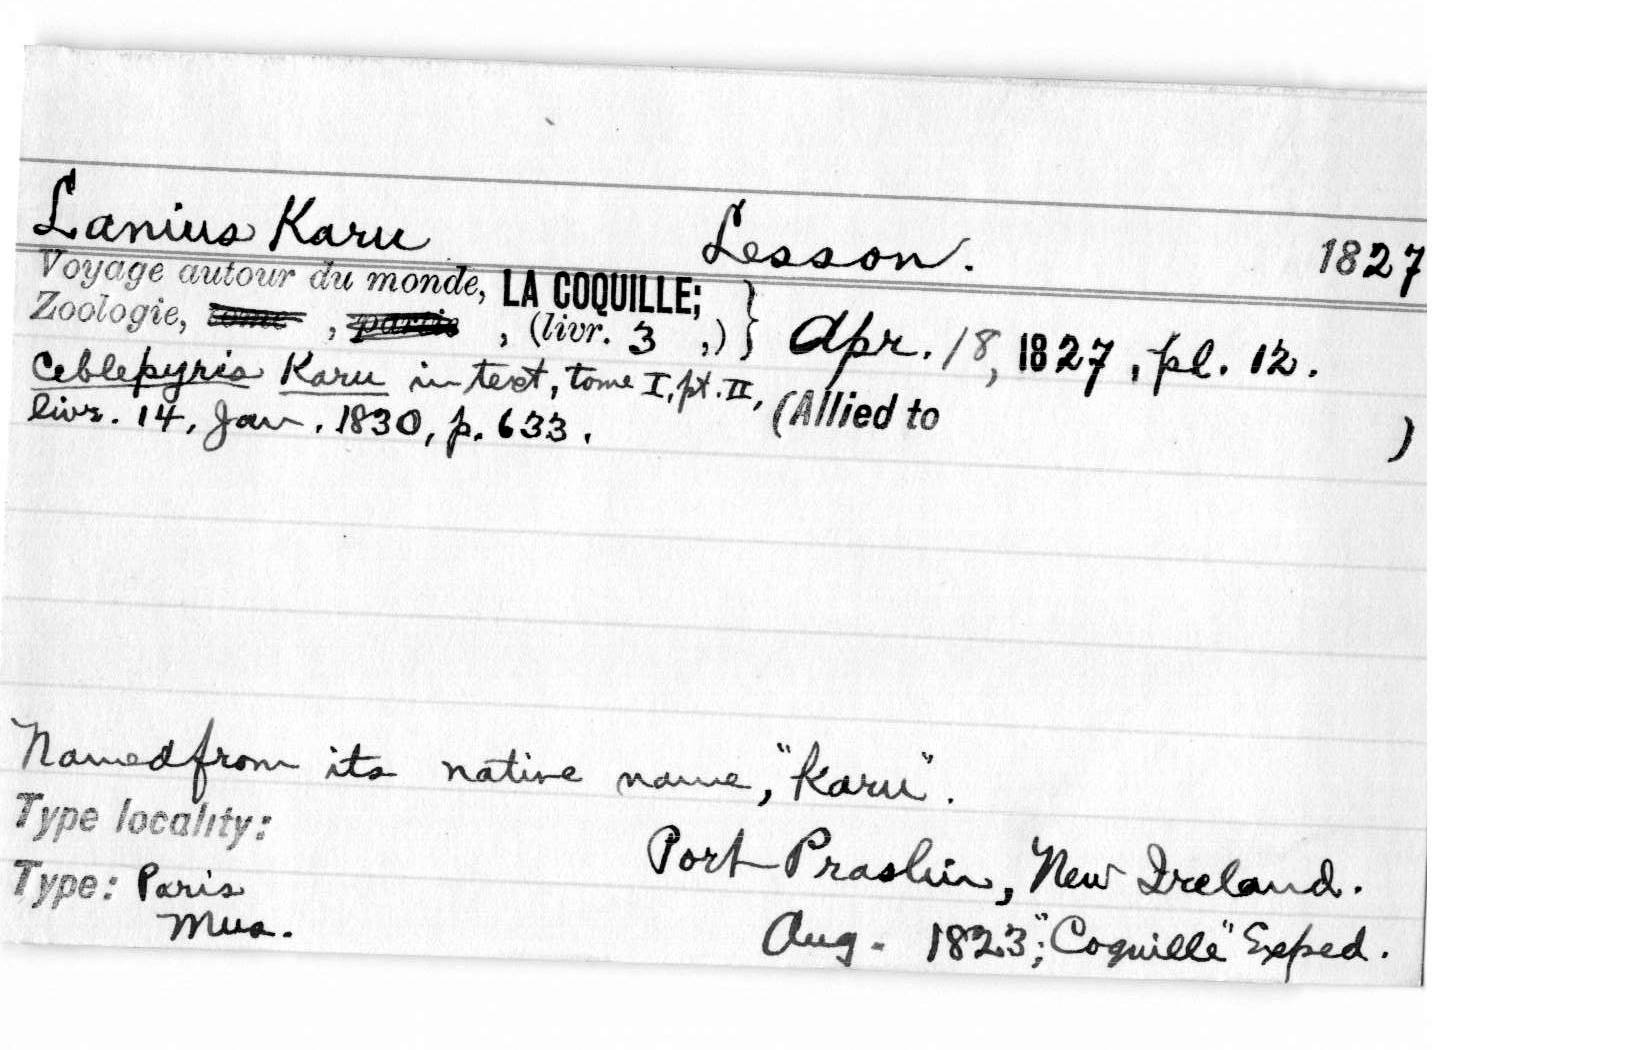 Lanius Karu Lesson. 1827
Voyage autour du monde, LA COQUILLE;
Zoologie, tome , partie , (livr. 3 ,) } Apr. 18, 1827, pl. 12.
Ceblepyris Karu in text, tome I, pt. II, (Allied to )
livr. 14, Jan. 1830, p. 633.
Named from its native name, "Karu".
Type locality:
Port Praslin, New Ireland.
Type: Paris
Mus.
Aug. 1823; "Coquille" Exped.